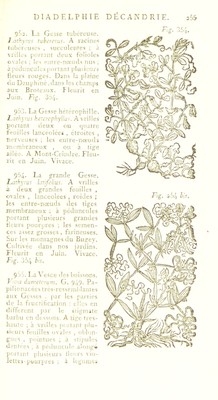 DIADELPHIE DÉCANDRIE.
Fig. 264.
962. La Gesse tubéreuse.
Lathyrus tuberosus. A racines
tubéreuses, succulentes ; à
vrilles portant deux folioles
ovales ; les entre-nœuds nus ;
à pédoncules portant plusieurs
fleurs rouges. Dans la plaine
du Dauphiné, dans les champs
aux Broteaux. Fleurit en
Juin. Fig. 264.
963. La Gesse hétérophille.
Lathyrus heterophyllus. A vrilles
portant deux ou quatre
feuilles lancéolées, étroites,
; les entre-nœuds
membraneux, on à tige
ailée. A Mont-Cindre. Fleu-
rit en Juin. Vivace.
964. La grande Gesse.
Lathyrus latifolius. A vrilles
à deux grandes feuilles
ovales, lancéolées, roides ;
les entre-nœuds des tiges
membraneux ; à pédoncules
portant plusieurs grandes
fleurs pourpres ; les semen-
ces assez grosses, farineuses.
Sur les montagnes du Bugey.
Cultivée dans nos jardins.
Fleurit en Juin. Vivace.
Fig. 264 bis.
Fig. 264 bis.
965. La Vesce des buissons.
Vicia dumetorum. G. 949. Pa-
pilionacées très-ressemblantes
aux Gesses, par les parties
de la fructification : elles en
différent par le stigmate
barbu en dessous. A tige ram-
pante ; à vrilles portant plu-
sieurs feuilles ovales, oblon-
gues, pointues ; à stipules
dentées ; à pédoncule alongé
portant plusieurs fleurs vio-
lettes pourpres ; à légumes